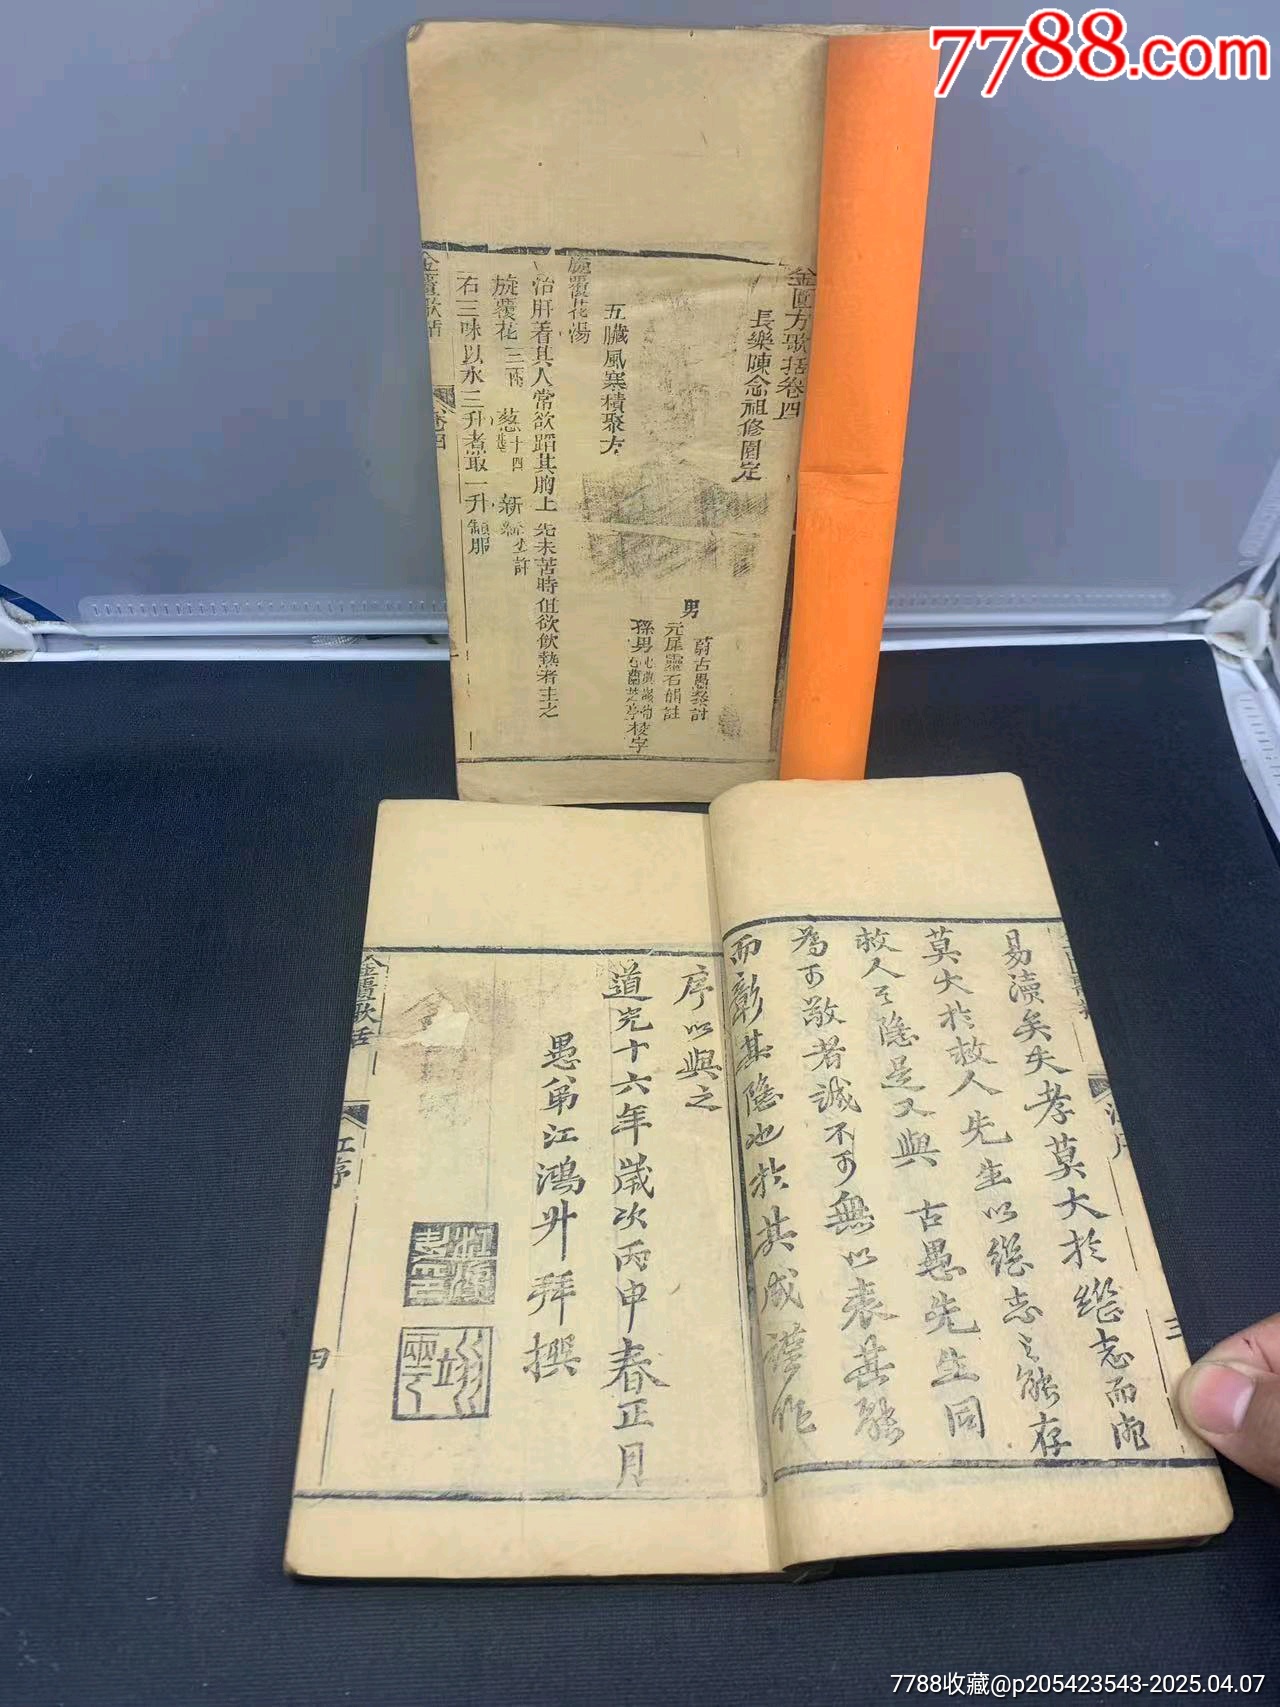 7788.com
金匱方歌括卷四
長樂陳念祖修園定
男
蔚古愚叅訂
元犀靈石韻註
孫男心典徽菴
心蘭芝亭校字
五臟風寒積聚方
旋覆花湯
治肝着其人常欲蹈其胸上先未苦時但欲飲熱者主之
旋覆花三兩 葱十四莖 新絳少許
右三味以水三升煮取一升頓服
金匱歌括 卷四
三
易瀆矣夫孝莫大於繼志而濟
莫大於救人先生以繼志之能存
救人之隱是又與 古愚先生同
為可敬者誠不可無以表其能
而彰其隱也於其成謹作
序以與之
道光十六年歲次丙申春正月
愚弟江鴻升拜撰
金匱歌括 江序 四
7788收藏@p205423543-2025.04.07